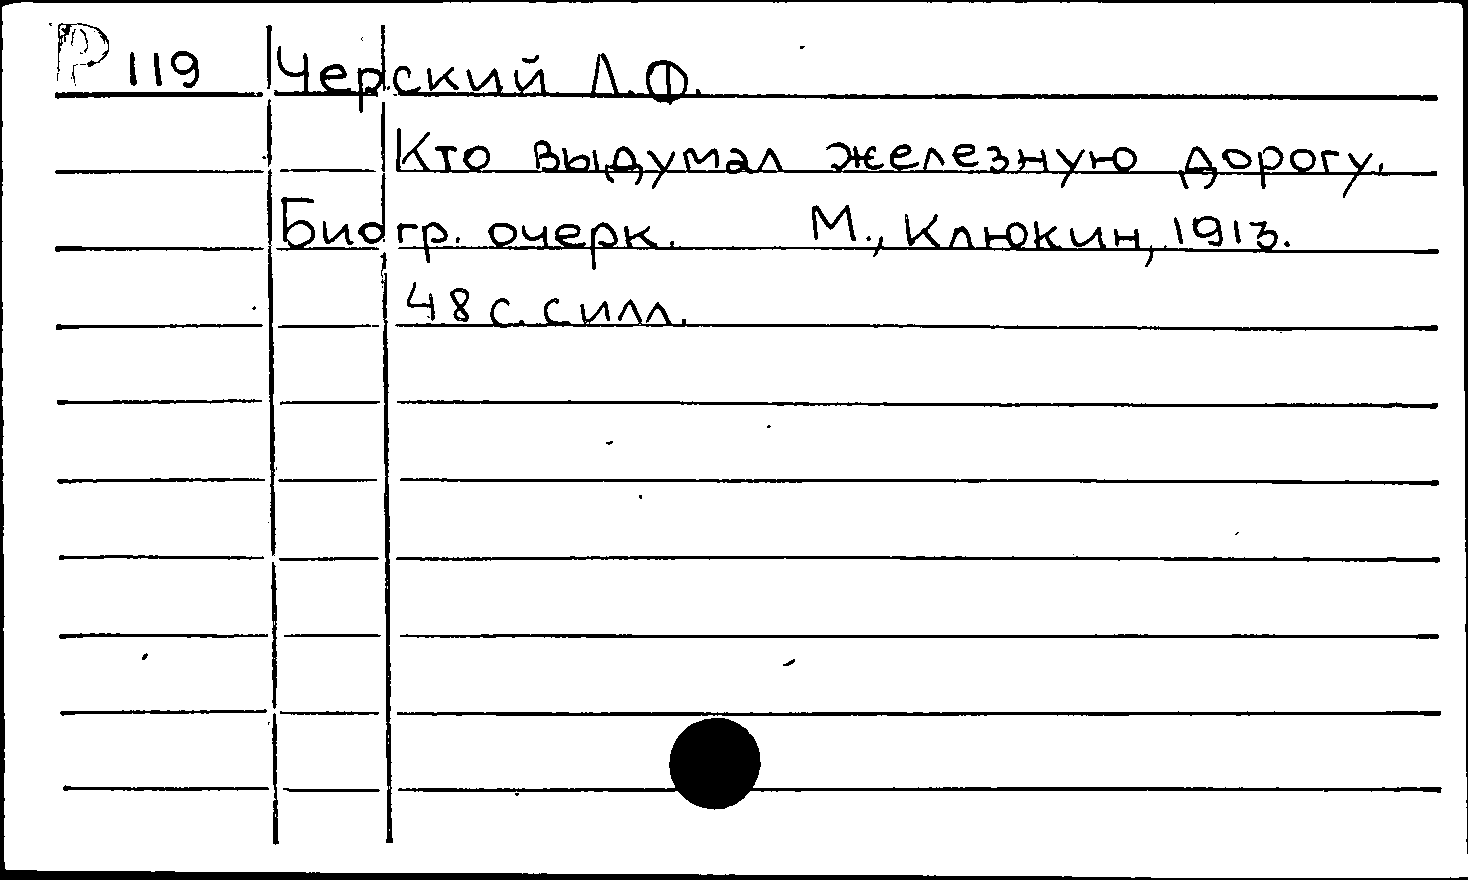 Р 119 Черский Л.Ф.
Кто выдумал железную дорогу.
Биогр. очерк. М., Клюкин, 1913.
48 с. с илл.